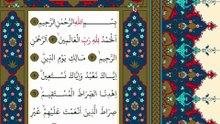 بِسْمِ اللَّهِ الرَّحْمَٰنِ الرَّحِيمِ ۝
الْحَمْدُ لِلَّهِ رَبِّ الْعَالَمِينَ ۝ الرَّحْمَٰنِ
الرَّحِيمِ ۝ مَالِكِ يَوْمِ الدِّينِ ۝
إِيَّاكَ نَعْبُدُ وَإِيَّاكَ نَسْتَعِينُ ۝
اهْدِنَا الصِّرَاطَ الْمُسْتَقِيمَ ۝
صِرَاطَ الَّذِينَ أَنْعَمْتَ عَلَيْهِمْ غَيْرِ